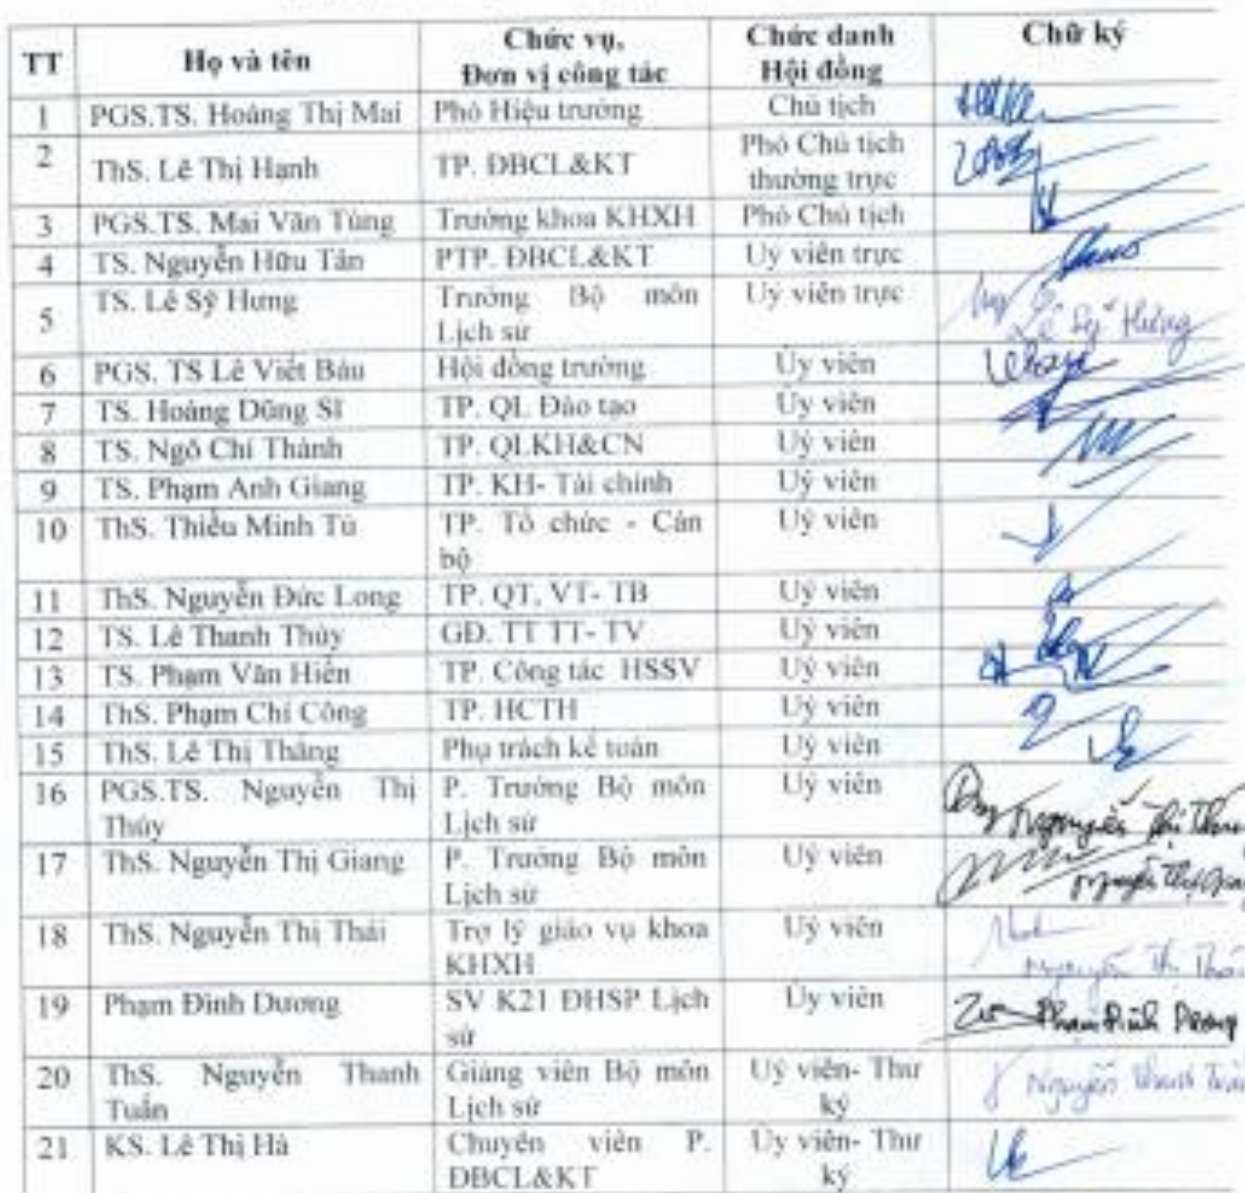 TT Họ và tên Chức vụ, Đơn vị công tác Chức danh Hội đồng Chữ ký
1 PGS.TS. Hoàng Thị Mai Phó Hiệu trưởng Chủ tịch
2 ThS. Lê Thị Hạnh TP. ĐBCL&KT Phó Chủ tịch thường trực
3 PGS.TS. Mai Văn Tùng Trưởng khoa KHXH Phó Chủ tịch
4 TS. Nguyễn Hữu Tân PTP. ĐBCL&KT Uỷ viên trực
5 TS. Lê Sỹ Hưng Trưởng Bộ môn Lịch sử Uỷ viên trực Lê Sỹ Hưng
6 PGS. TS Lê Viết Báu Hội đồng trường Ủy viên
7 TS. Hoàng Dũng Sĩ TP. QL Đào tạo Ủy viên
8 TS. Ngô Chí Thành TP. QLKH&CN Uỷ viên
9 TS. Phạm Anh Giang TP. KH- Tài chính Uỷ viên
10 ThS. Thiều Minh Tú TP. Tổ chức - Cán bộ Uỷ viên
11 ThS. Nguyễn Đức Long TP. QT, VT- TB Uỷ viên
12 TS. Lê Thanh Thủy GĐ. TT TT- TV Uỷ viên
13 TS. Phạm Văn Hiền TP. Công tác HSSV Uỷ viên
14 ThS. Phạm Chí Công TP. HCTH Uỷ viên
15 ThS. Lê Thị Thắng Phụ trách kế toán Uỷ viên
16 PGS.TS. Nguyễn Thị Thúy P. Trưởng Bộ môn Lịch sử Uỷ viên Nguyễn Thị
17 ThS. Nguyễn Thị Giang P. Trưởng Bộ môn Lịch sử Uỷ viên Nguyễn Thị
18 ThS. Nguyễn Thị Thái Trợ lý giáo vụ khoa KHXH Uỷ viên Nguyễn Thị
19 Phạm Đình Dương SV K21 ĐHSP Lịch sử Ủy viên Phạm Đình Dương
20 ThS. Nguyễn Thanh Tuấn Giảng viên Bộ môn Lịch sử Uỷ viên- Thư ký Nguyễn Thanh
21 KS. Lê Thị Hà Chuyên viên P. ĐBCL&KT Ủy viên- Thư ký